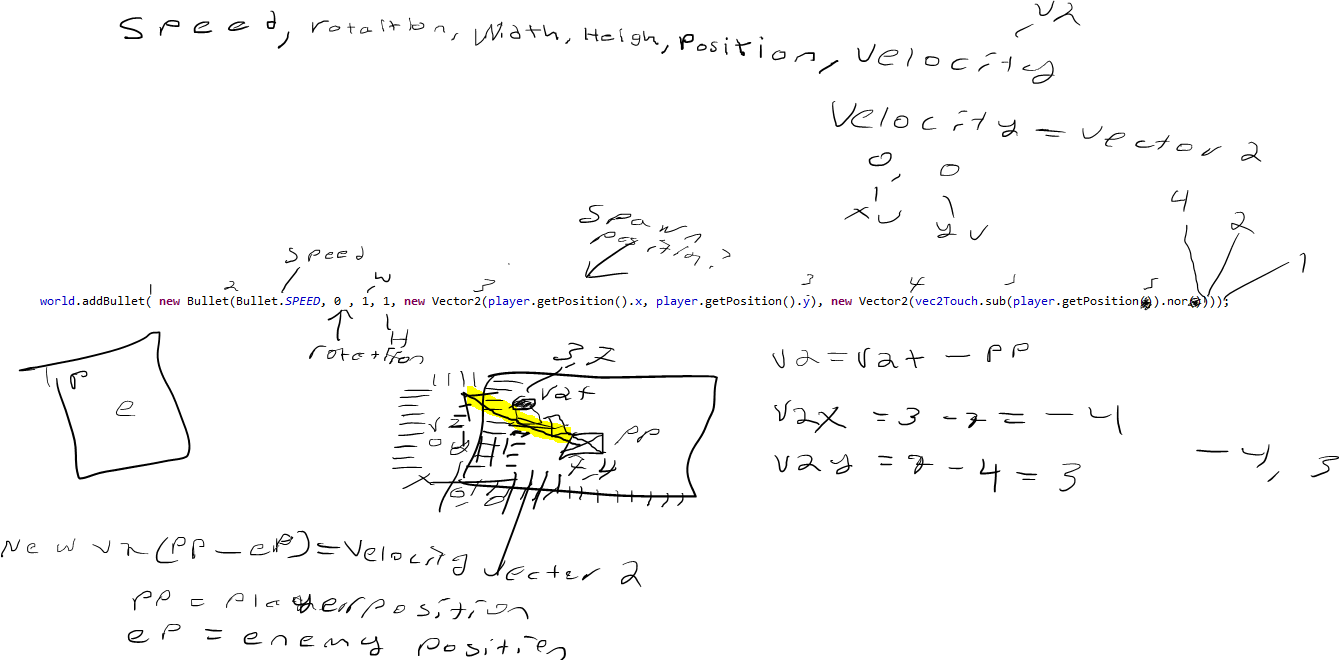 Speed, rotaition, Width, Heigh, Position, Velocity
v2
Velocity = vector 2
0, 0
xv yv
4 2 1
Spawn
position?
Speed
w
1 2 3 3 4 1 5
world.addBullet( new Bullet(Bullet.SPEED, 0 , 1, 1, new Vector2(player.getPosition().x, player.getPosition().y), new Vector2(vec2Touch.sub(player.getPosition().nor()));
rotation
H
P
e
3,7
v2t
PP
7,4
v2 = v2t - PP
v2x = 3 - 7 = -4
v2y = 7 - 4 = 3
-4, 3
New v2(PP - eP) = Velocity Vector 2
PP = Player position
eP = enemy position